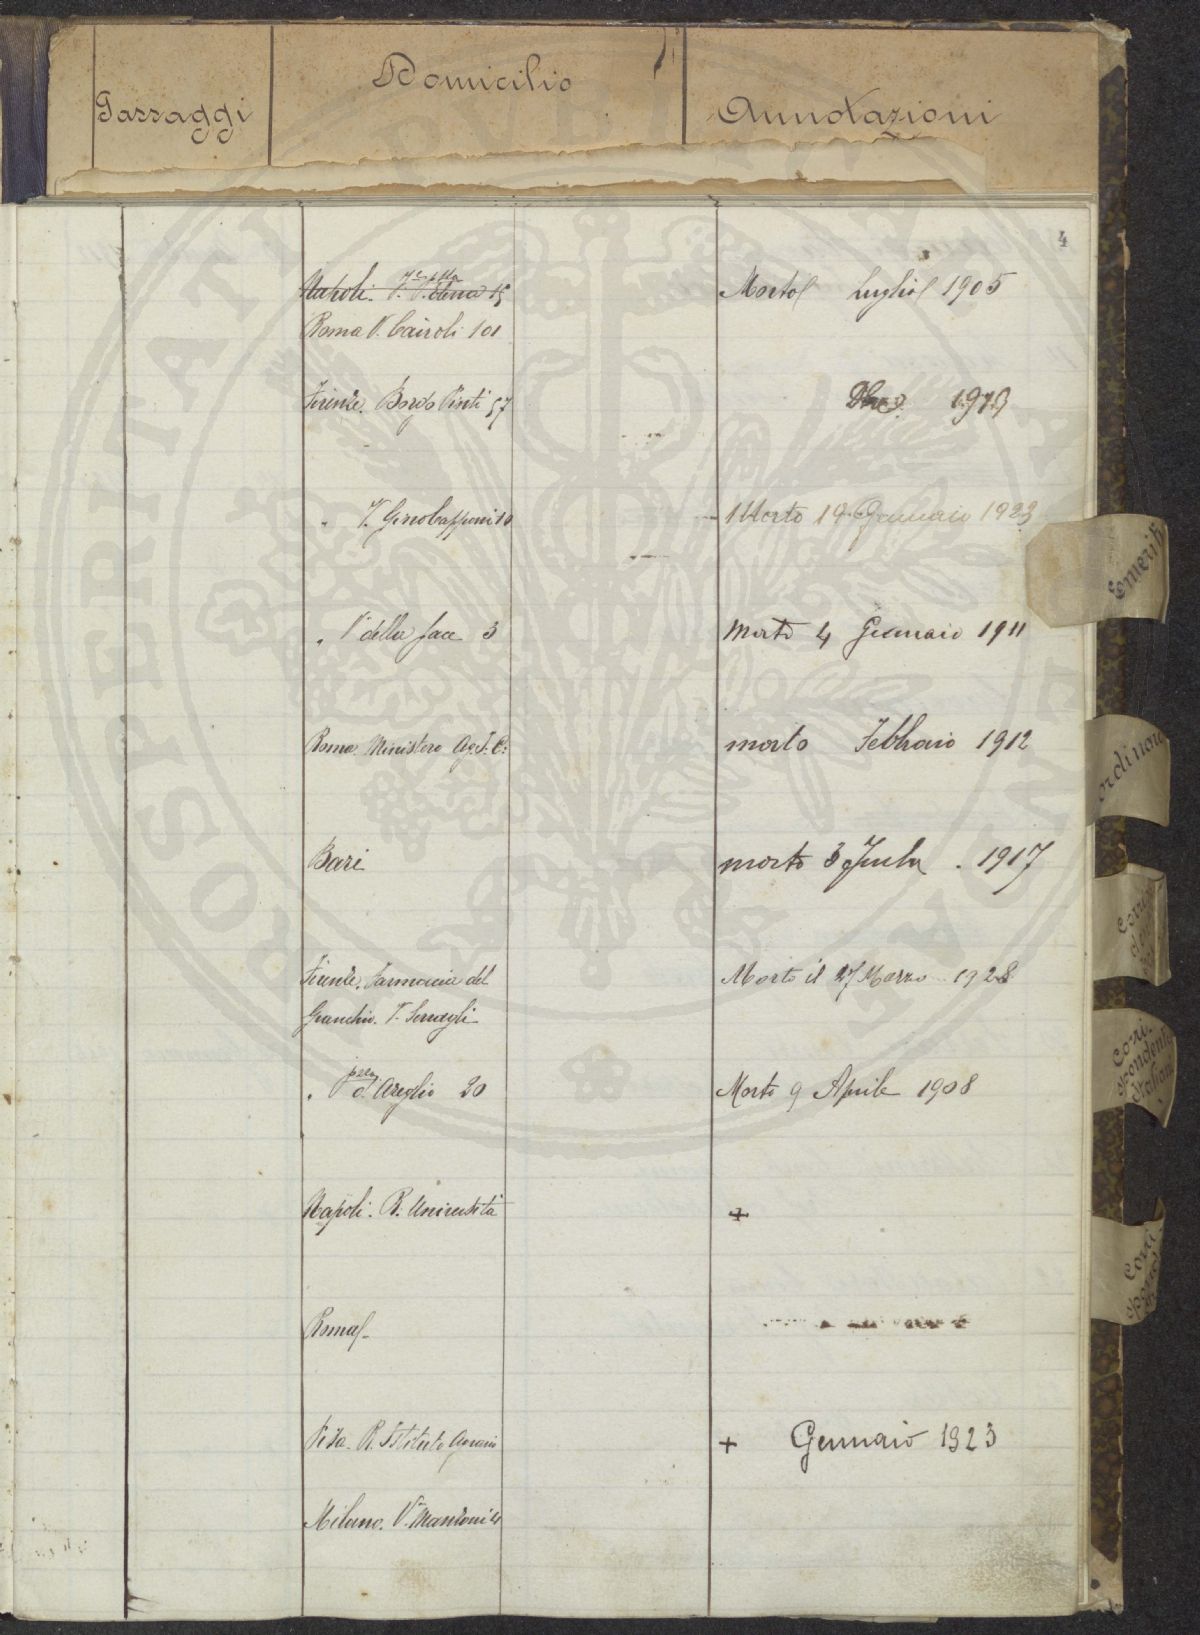 Passaggi
Domicilio
Annotazioni
4
Napoli. V. 15
Morto Luglio 1905
Roma V. Cairoli 101
Firenze. Borgo Pinti 57
1913
" V. Gino Capponi 10
Morto 19 Gennaio 1923
" V. della Pace 3
Morto 4 Gennaio 1911
Roma. Ministero Ag. I. C.
morto Febbraio 1912
Bari
morto 3 1917
Firenze. Farmacia del
Morto il 27 Marzo 1928
Granchio. V. Serragli
" d'Azeglio 20
Morto 9 Aprile 1908
Napoli. R. Università
+
Roma
Pisa. R. Istituto Agrario
+ Gennaio 1923
Milano. V. Manzoni
Emeriti
Ordinari
Corri
spondenti
Italiani
Corri
APOSPERITATI PUBLICAE AUGENDAE